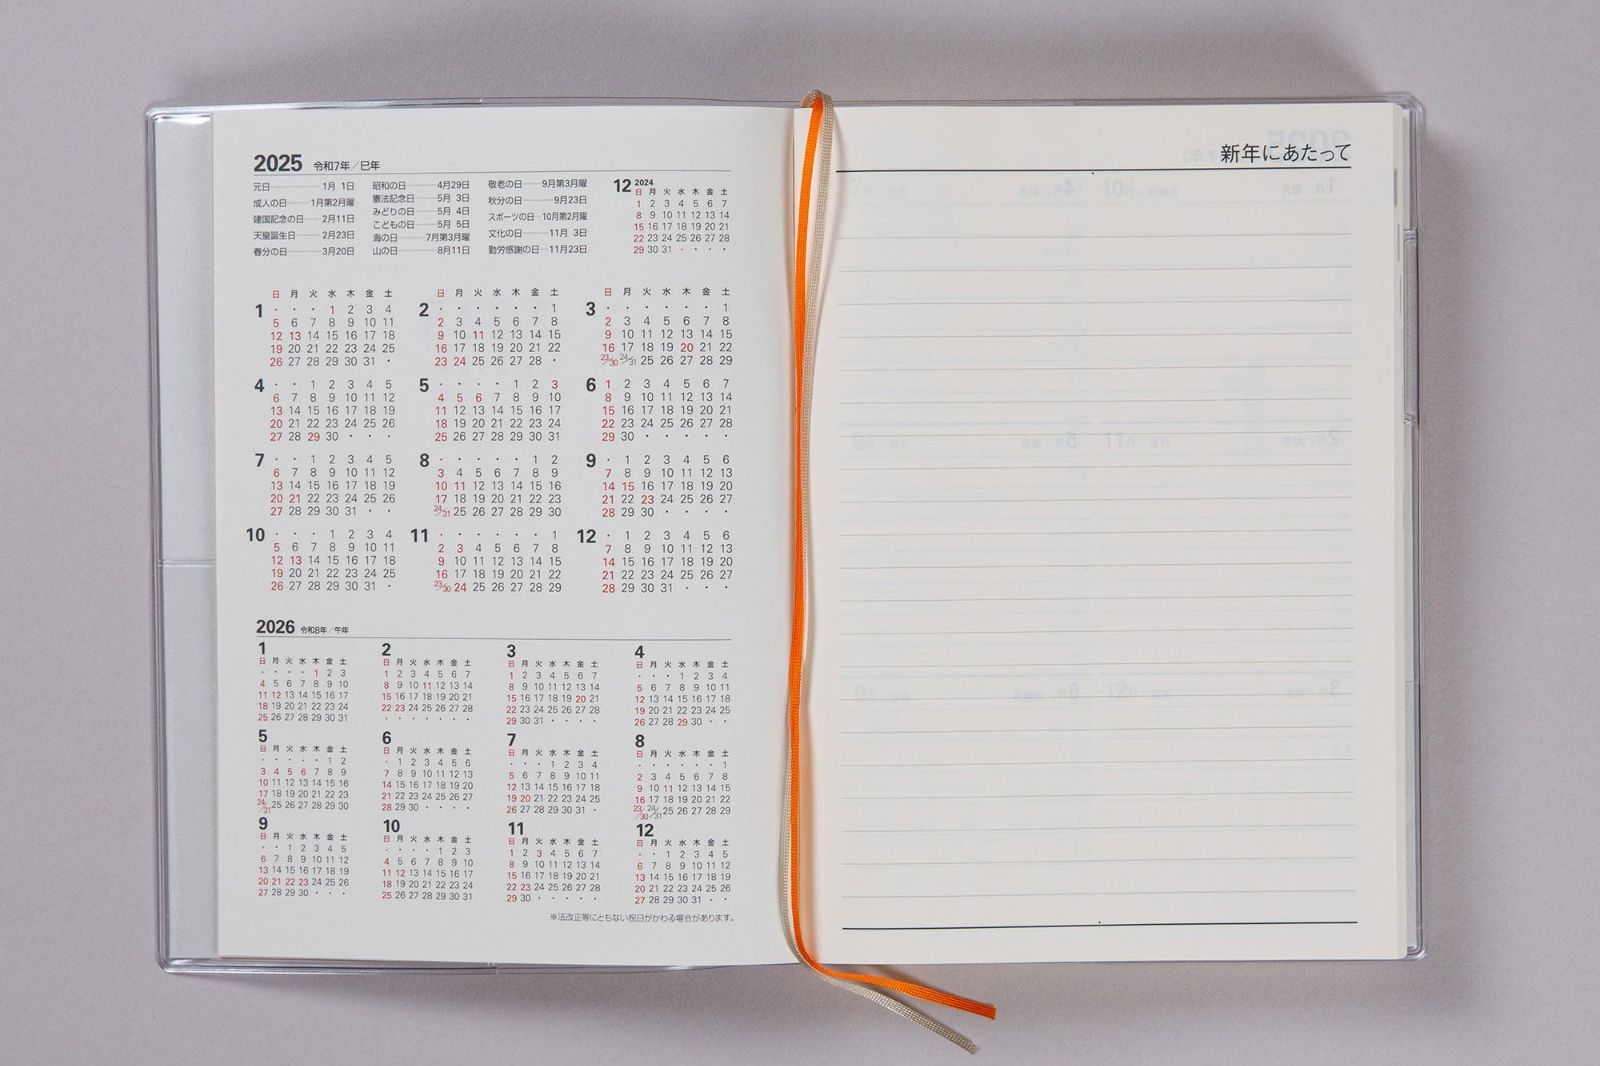 2025 令和7年／巳年
元日 1月 1日
成人の日 1月第2月曜
建国記念の日 2月11日
天皇誕生日 2月23日
春分の日 3月20日
昭和の日 4月29日
憲法記念日 5月 3日
みどりの日 5月 4日
こどもの日 5月 5日
海の日 7月第3月曜
山の日 8月11日
敬老の日 9月第3月曜
秋分の日 9月23日
スポーツの日 10月第2月曜
文化の日 11月 3日
勤労感謝の日 11月23日
12 2024
日 月 火 水 木 金 土
1 2 3 4 5 6 7
8 9 10 11 12 13 14
15 16 17 18 19 20 21
22 23 24 25 26 27 28
29 30 31 · · · ·
日 月 火 水 木 金 土
1 · · · 1 2 3 4
5 6 7 8 9 10 11
12 13 14 15 16 17 18
19 20 21 22 23 24 25
26 27 28 29 30 31 ·
日 月 火 水 木 金 土
2 · · · · · · 1
2 3 4 5 6 7 8
9 10 11 12 13 14 15
16 17 18 19 20 21 22
23 24 25 26 27 28 ·
日 月 火 水 木 金 土
3 · · · · · · 1
2 3 4 5 6 7 8
9 10 11 12 13 14 15
16 17 18 19 20 21 22
23/30 24/31 25 26 27 28 29
4 · · 1 2 3 4 5
6 7 8 9 10 11 12
13 14 15 16 17 18 19
20 21 22 23 24 25 26
27 28 29 30 · · ·
5 · · · · 1 2 3
4 5 6 7 8 9 10
11 12 13 14 15 16 17
18 19 20 21 22 23 24
25 26 27 28 29 30 31
6 1 2 3 4 5 6 7
8 9 10 11 12 13 14
15 16 17 18 19 20 21
22 23 24 25 26 27 28
29 30 · · · · ·
7 · · 1 2 3 4 5
6 7 8 9 10 11 12
13 14 15 16 17 18 19
20 21 22 23 24 25 26
27 28 29 30 31 · ·
8 · · · · · 1 2
3 4 5 6 7 8 9
10 11 12 13 14 15 16
17 18 19 20 21 22 23
24/31 25 26 27 28 29 30
9 · 1 2 3 4 5 6
7 8 9 10 11 12 13
14 15 16 17 18 19 20
21 22 23 24 25 26 27
28 29 30 · · · ·
10 · · · 1 2 3 4
5 6 7 8 9 10 11
12 13 14 15 16 17 18
19 20 21 22 23 24 25
26 27 28 29 30 31 ·
11 · · · · · · 1
2 3 4 5 6 7 8
9 10 11 12 13 14 15
16 17 18 19 20 21 22
23/30 24 25 26 27 28 29
12 · 1 2 3 4 5 6
7 8 9 10 11 12 13
14 15 16 17 18 19 20
21 22 23 24 25 26 27
28 29 30 31 · · ·
2026 令和8年／午年
1
日 月 火 水 木 金 土
· · · · 1 2 3
4 5 6 7 8 9 10
11 12 13 14 15 16 17
18 19 20 21 22 23 24
25 26 27 28 29 30 31
2
日 月 火 水 木 金 土
1 2 3 4 5 6 7
8 9 10 11 12 13 14
15 16 17 18 19 20 21
22 23 24 25 26 27 28
· · · · · · ·
3
日 月 火 水 木 金 土
1 2 3 4 5 6 7
8 9 10 11 12 13 14
15 16 17 18 19 20 21
22 23 24 25 26 27 28
29 30 31 · · · ·
4
日 月 火 水 木 金 土
· · · 1 2 3 4
5 6 7 8 9 10 11
12 13 14 15 16 17 18
19 20 21 22 23 24 25
26 27 28 29 30 · ·
5
日 月 火 水 木 金 土
· · · · · 1 2
3 4 5 6 7 8 9
10 11 12 13 14 15 16
17 18 19 20 21 22 23
24/31 25 26 27 28 29 30
6
日 月 火 水 木 金 土
· 1 2 3 4 5 6
7 8 9 10 11 12 13
14 15 16 17 18 19 20
21 22 23 24 25 26 27
28 29 30 · · · ·
7
日 月 火 水 木 金 土
· · · 1 2 3 4
5 6 7 8 9 10 11
12 13 14 15 16 17 18
19 20 21 22 23 24 25
26 27 28 29 30 31 ·
8
日 月 火 水 木 金 土
· · · · · · 1
2 3 4 5 6 7 8
9 10 11 12 13 14 15
16 17 18 19 20 21 22
23/30 24/31 25 26 27 28 29
9
日 月 火 水 木 金 土
· · 1 2 3 4 5
6 7 8 9 10 11 12
13 14 15 16 17 18 19
20 21 22 23 24 25 26
27 28 29 30 · · ·
10
日 月 火 水 木 金 土
· · · · 1 2 3
4 5 6 7 8 9 10
11 12 13 14 15 16 17
18 19 20 21 22 23 24
25 26 27 28 29 30 31
11
日 月 火 水 木 金 土
1 2 3 4 5 6 7
8 9 10 11 12 13 14
15 16 17 18 19 20 21
22 23 24 25 26 27 28
29 30 · · · · ·
12
日 月 火 水 木 金 土
· · 1 2 3 4 5
6 7 8 9 10 11 12
13 14 15 16 17 18 19
20 21 22 23 24 25 26
27 28 29 30 31 · ·
※法改正等にともない祝日がかわる場合があります。
新年にあたって